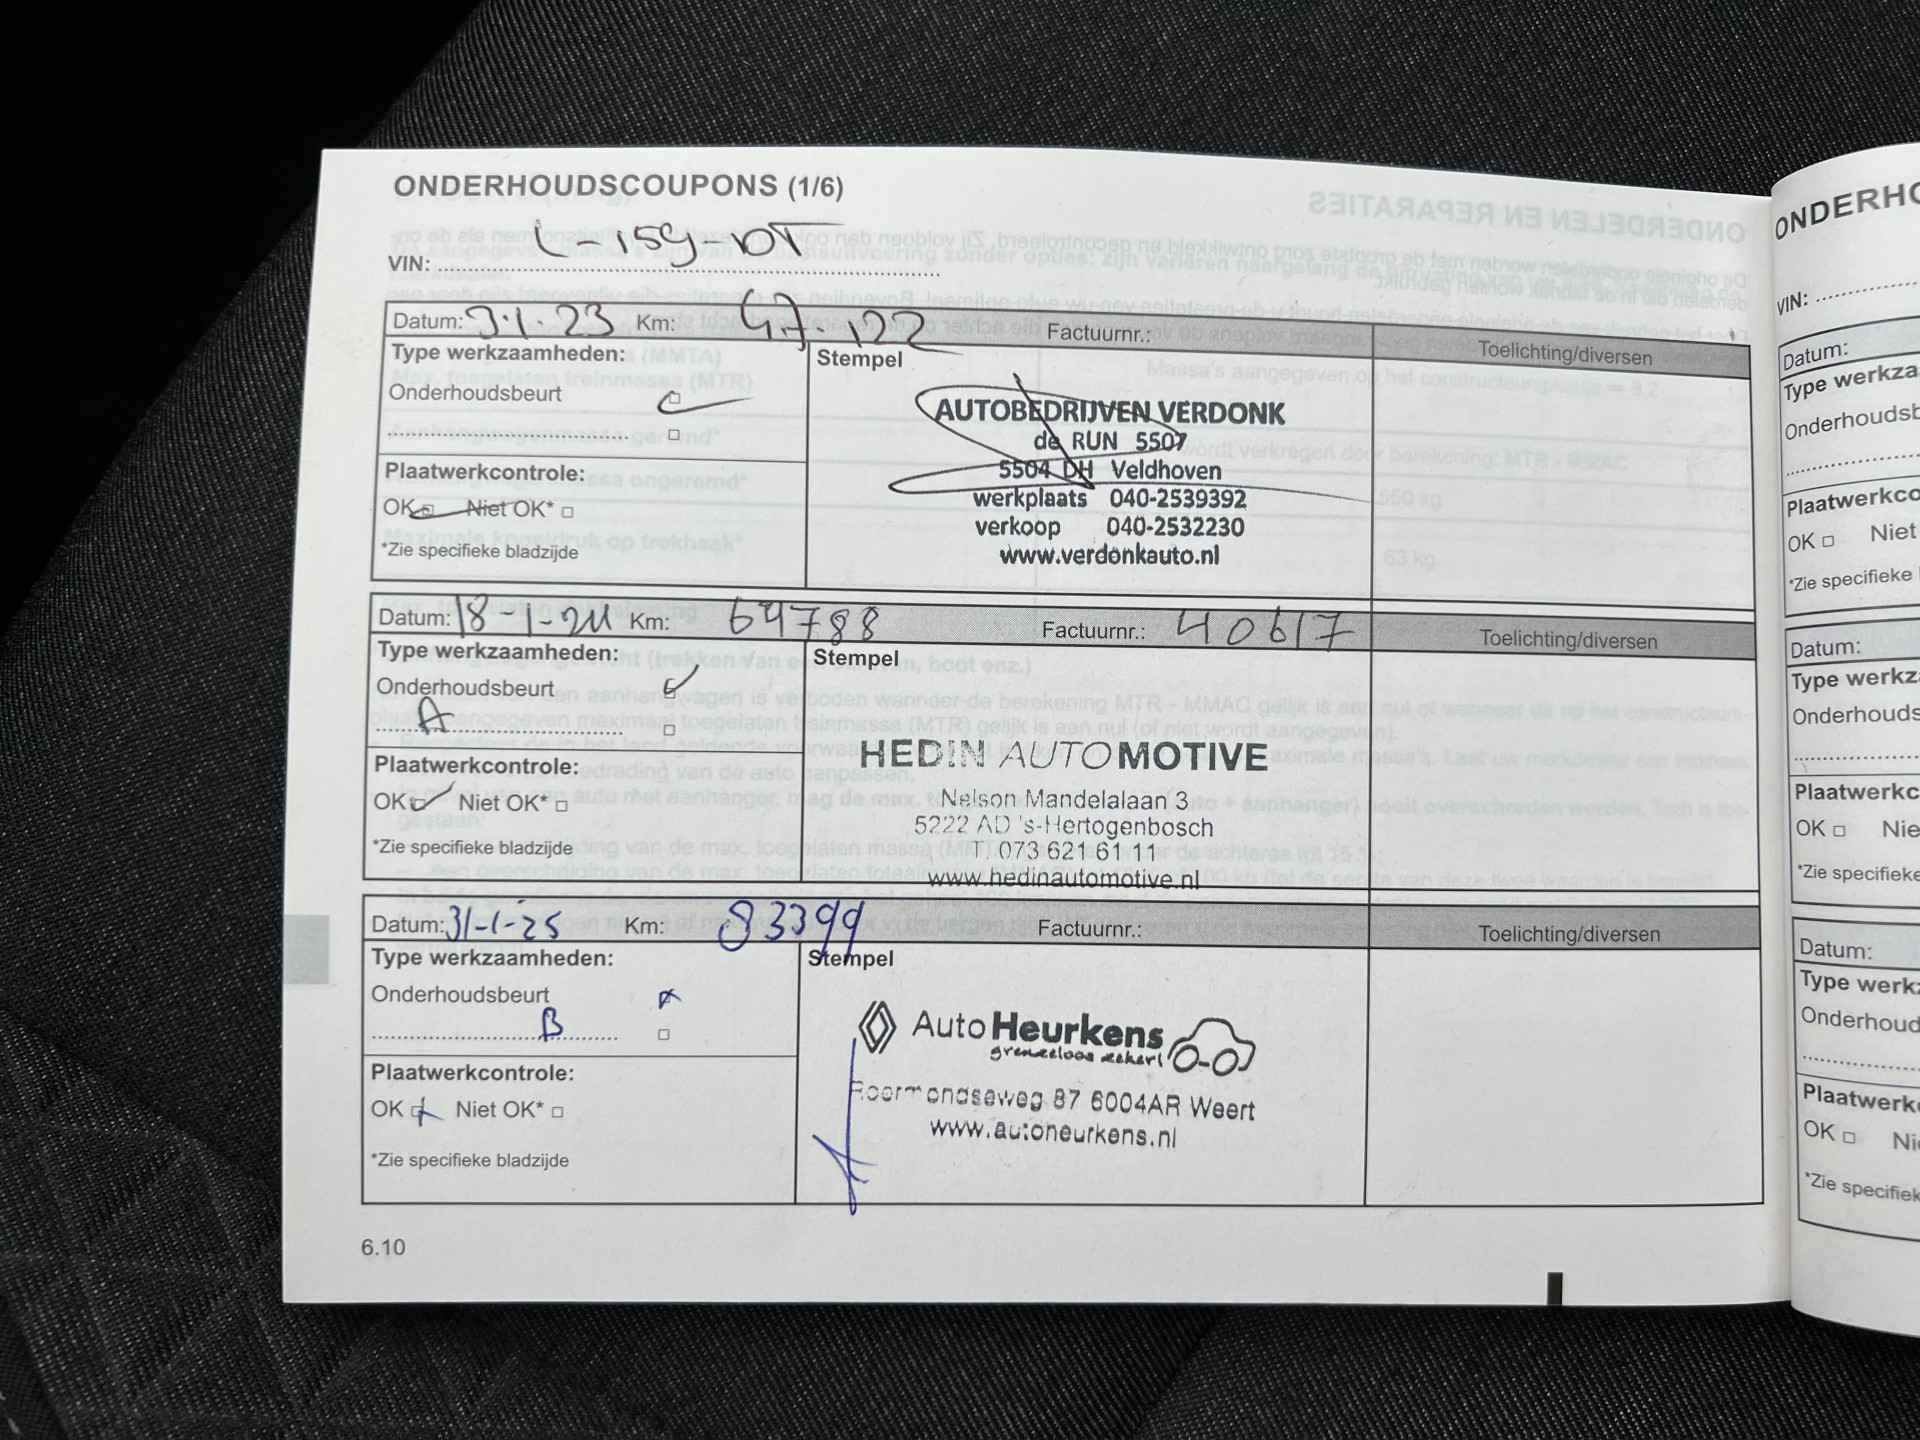 ONDERHOUDSCOUPONS (1/6)
VIN: L-159-DT
Datum: 9.1.23 Km: 47.122 Factuurnr.: Toelichting/diversen
Type werkzaamheden:
Stempel
Onderhoudsbeurt
Plaatwerkcontrole:
OK Niet OK*
*Zie specifieke bladzijde
AUTOBEDRIJVEN VERDONK
de RUN 5507
5504 DH Veldhoven
werkplaats 040-2539392
verkoop 040-2532230
www.verdonkauto.nl
Datum: 18-1-24 Km: 69788 Factuurnr.: 40617 Toelichting/diversen
Type werkzaamheden:
Stempel
Onderhoudsbeurt
A
Plaatwerkcontrole:
OK Niet OK*
*Zie specifieke bladzijde
HEDIN AUTOMOTIVE
Nelson Mandelalaan 3
5222 AD 's-Hertogenbosch
T. 073 621 61 11
www.hedinautomotive.nl
Datum: 31-1-25 Km: 83399 Factuurnr.: Toelichting/diversen
Type werkzaamheden:
Stempel
Onderhoudsbeurt
B
Plaatwerkcontrole:
OK Niet OK*
*Zie specifieke bladzijde
Auto Heurkens
grenzeloos zeker!
Roermondseweg 87 6004AR Weert
www.autoheurkens.nl
6.10
ONDERHO
VIN:
Datum:
Type werkza
Onderhoudsb
Plaatwerkco
OK Niet
*Zie specifieke
Datum:
Type werkz
Onderhouds
Plaatwerkc
OK Nie
*Zie specifieke
Datum:
Type werk
Onderhoud
Plaatwerk
OK Ni
*Zie specifiek